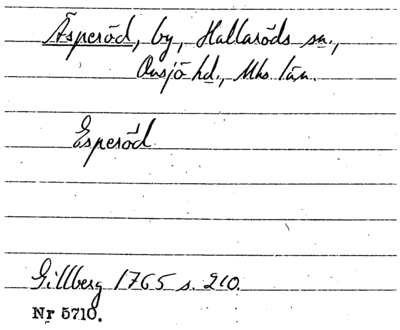 Äsperöd, by, Hallaröds sn.,
Onsjö hd., Mhs. län.
Esperöd
Gillberg 1765 s. 210.
Nr 5710.